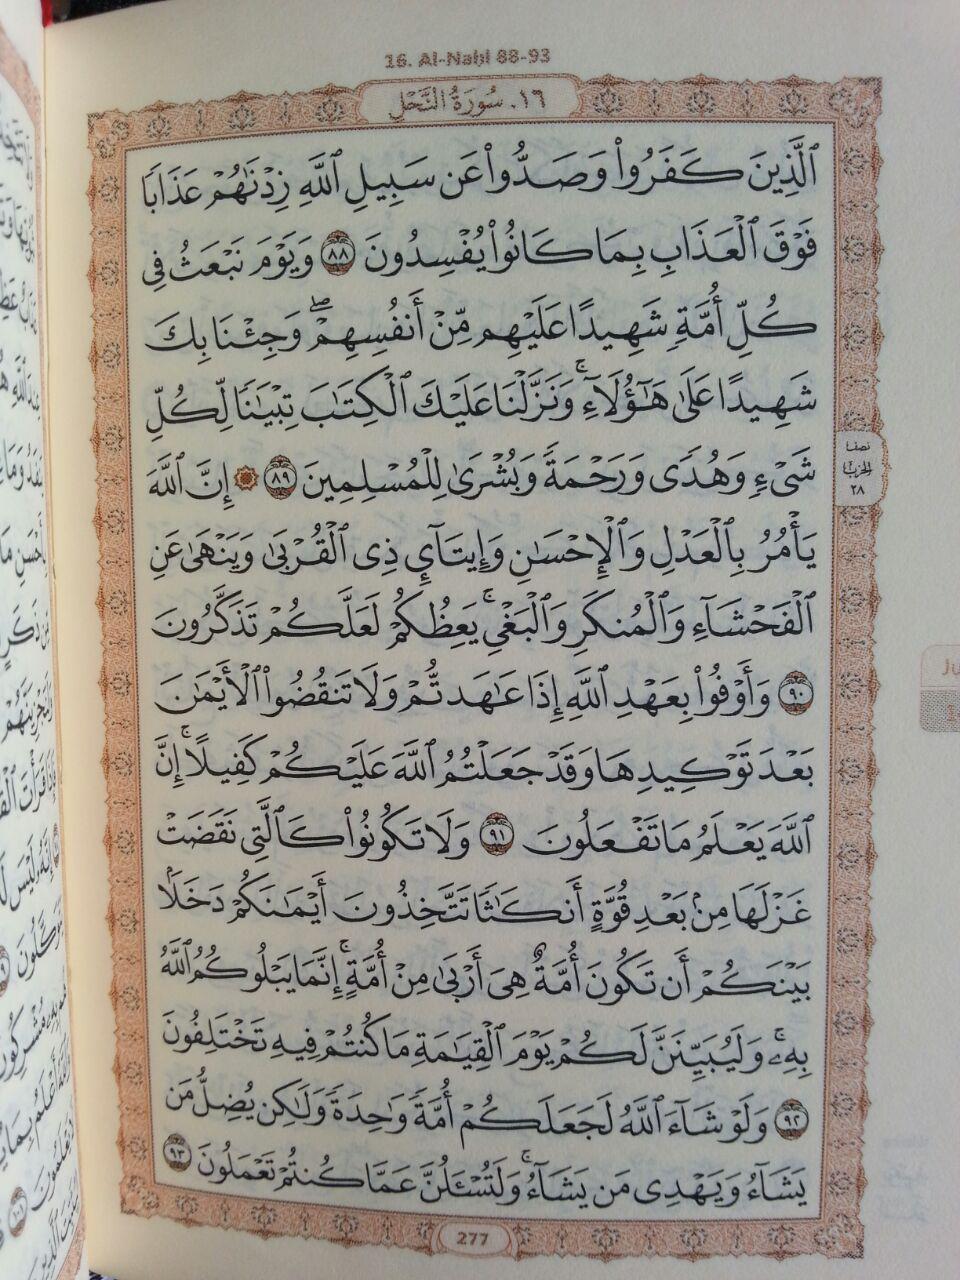 16. Al-Naḥl 88-93
١٦. سُورَةُ النَّحْلِ
ٱلَّذِينَ كَفَرُواْ وَصَدُّواْ عَن سَبِيلِ ٱللَّهِ زِدْنَٰهُمْ عَذَابًا
فَوْقَ ٱلْعَذَابِ بِمَا كَانُواْ يُفْسِدُونَ ٨٨ وَيَوْمَ نَبْعَثُ فِي
كُلِّ أُمَّةٍ شَهِيدًا عَلَيْهِم مِّنْ أَنفُسِهِمْ ۖ وَجِئْنَا بِكَ
شَهِيدًا عَلَىٰ هَٰٓؤُلَآءِ ۚ وَنَزَّلْنَا عَلَيْكَ ٱلْكِتَٰبَ تِبْيَٰنًا لِّكُلِّ
شَىْءٍ وَهُدًى وَرَحْمَةً وَبُشْرَىٰ لِلْمُسْلِمِينَ ٨٩ ۞ إِنَّ ٱللَّهَ
يَأْمُرُ بِٱلْعَدْلِ وَٱلْإِحْسَٰنِ وَإِيتَآيِٕ ذِى ٱلْقُرْبَىٰ وَيَنْهَىٰ عَنِ
ٱلْفَحْشَآءِ وَٱلْمُنكَرِ وَٱلْبَغْيِ ۚ يَعِظُكُمْ لَعَلَّكُمْ تَذَكَّرُونَ
٩٠ وَأَوْفُواْ بِعَهْدِ ٱللَّهِ إِذَا عَٰهَدتُّمْ وَلَا تَنقُضُواْ ٱلْأَيْمَٰنَ
بَعْدَ تَوْكِيدِهَا وَقَدْ جَعَلْتُمُ ٱللَّهَ عَلَيْكُمْ كَفِيلًا ۚ إِنَّ
ٱللَّهَ يَعْلَمُ مَا تَفْعَلُونَ ٩١ وَلَا تَكُونُواْ كَٱلَّتِي نَقَضَتْ
غَزْلَهَا مِنۢ بَعْدِ قُوَّةٍ أَنكَٰثًا تَتَّخِذُونَ أَيْمَٰنَكُمْ دَخَلًۢا
بَيْنَكُمْ أَن تَكُونَ أُمَّةٌ هِىَ أَرْبَىٰ مِنْ أُمَّةٍ ۚ إِنَّمَا يَبْلُوكُمُ ٱللَّهُ
بِهِۦ ۚ وَلَيُبَيِّنَنَّ لَكُمْ يَوْمَ ٱلْقِيَٰمَةِ مَا كُنتُمْ فِيهِ تَخْتَلِفُونَ
٩٢ وَلَوْ شَآءَ ٱللَّهُ لَجَعَلَكُمْ أُمَّةً وَٰحِدَةً وَلَٰكِن يُضِلُّ مَن
يَشَآءُ وَيَهْدِى مَن يَشَآءُ ۚ وَلَتُسْـَٔلُنَّ عَمَّا كُنتُمْ تَعْمَلُونَ ٩٣
نصف
الحزب
٢٨
277